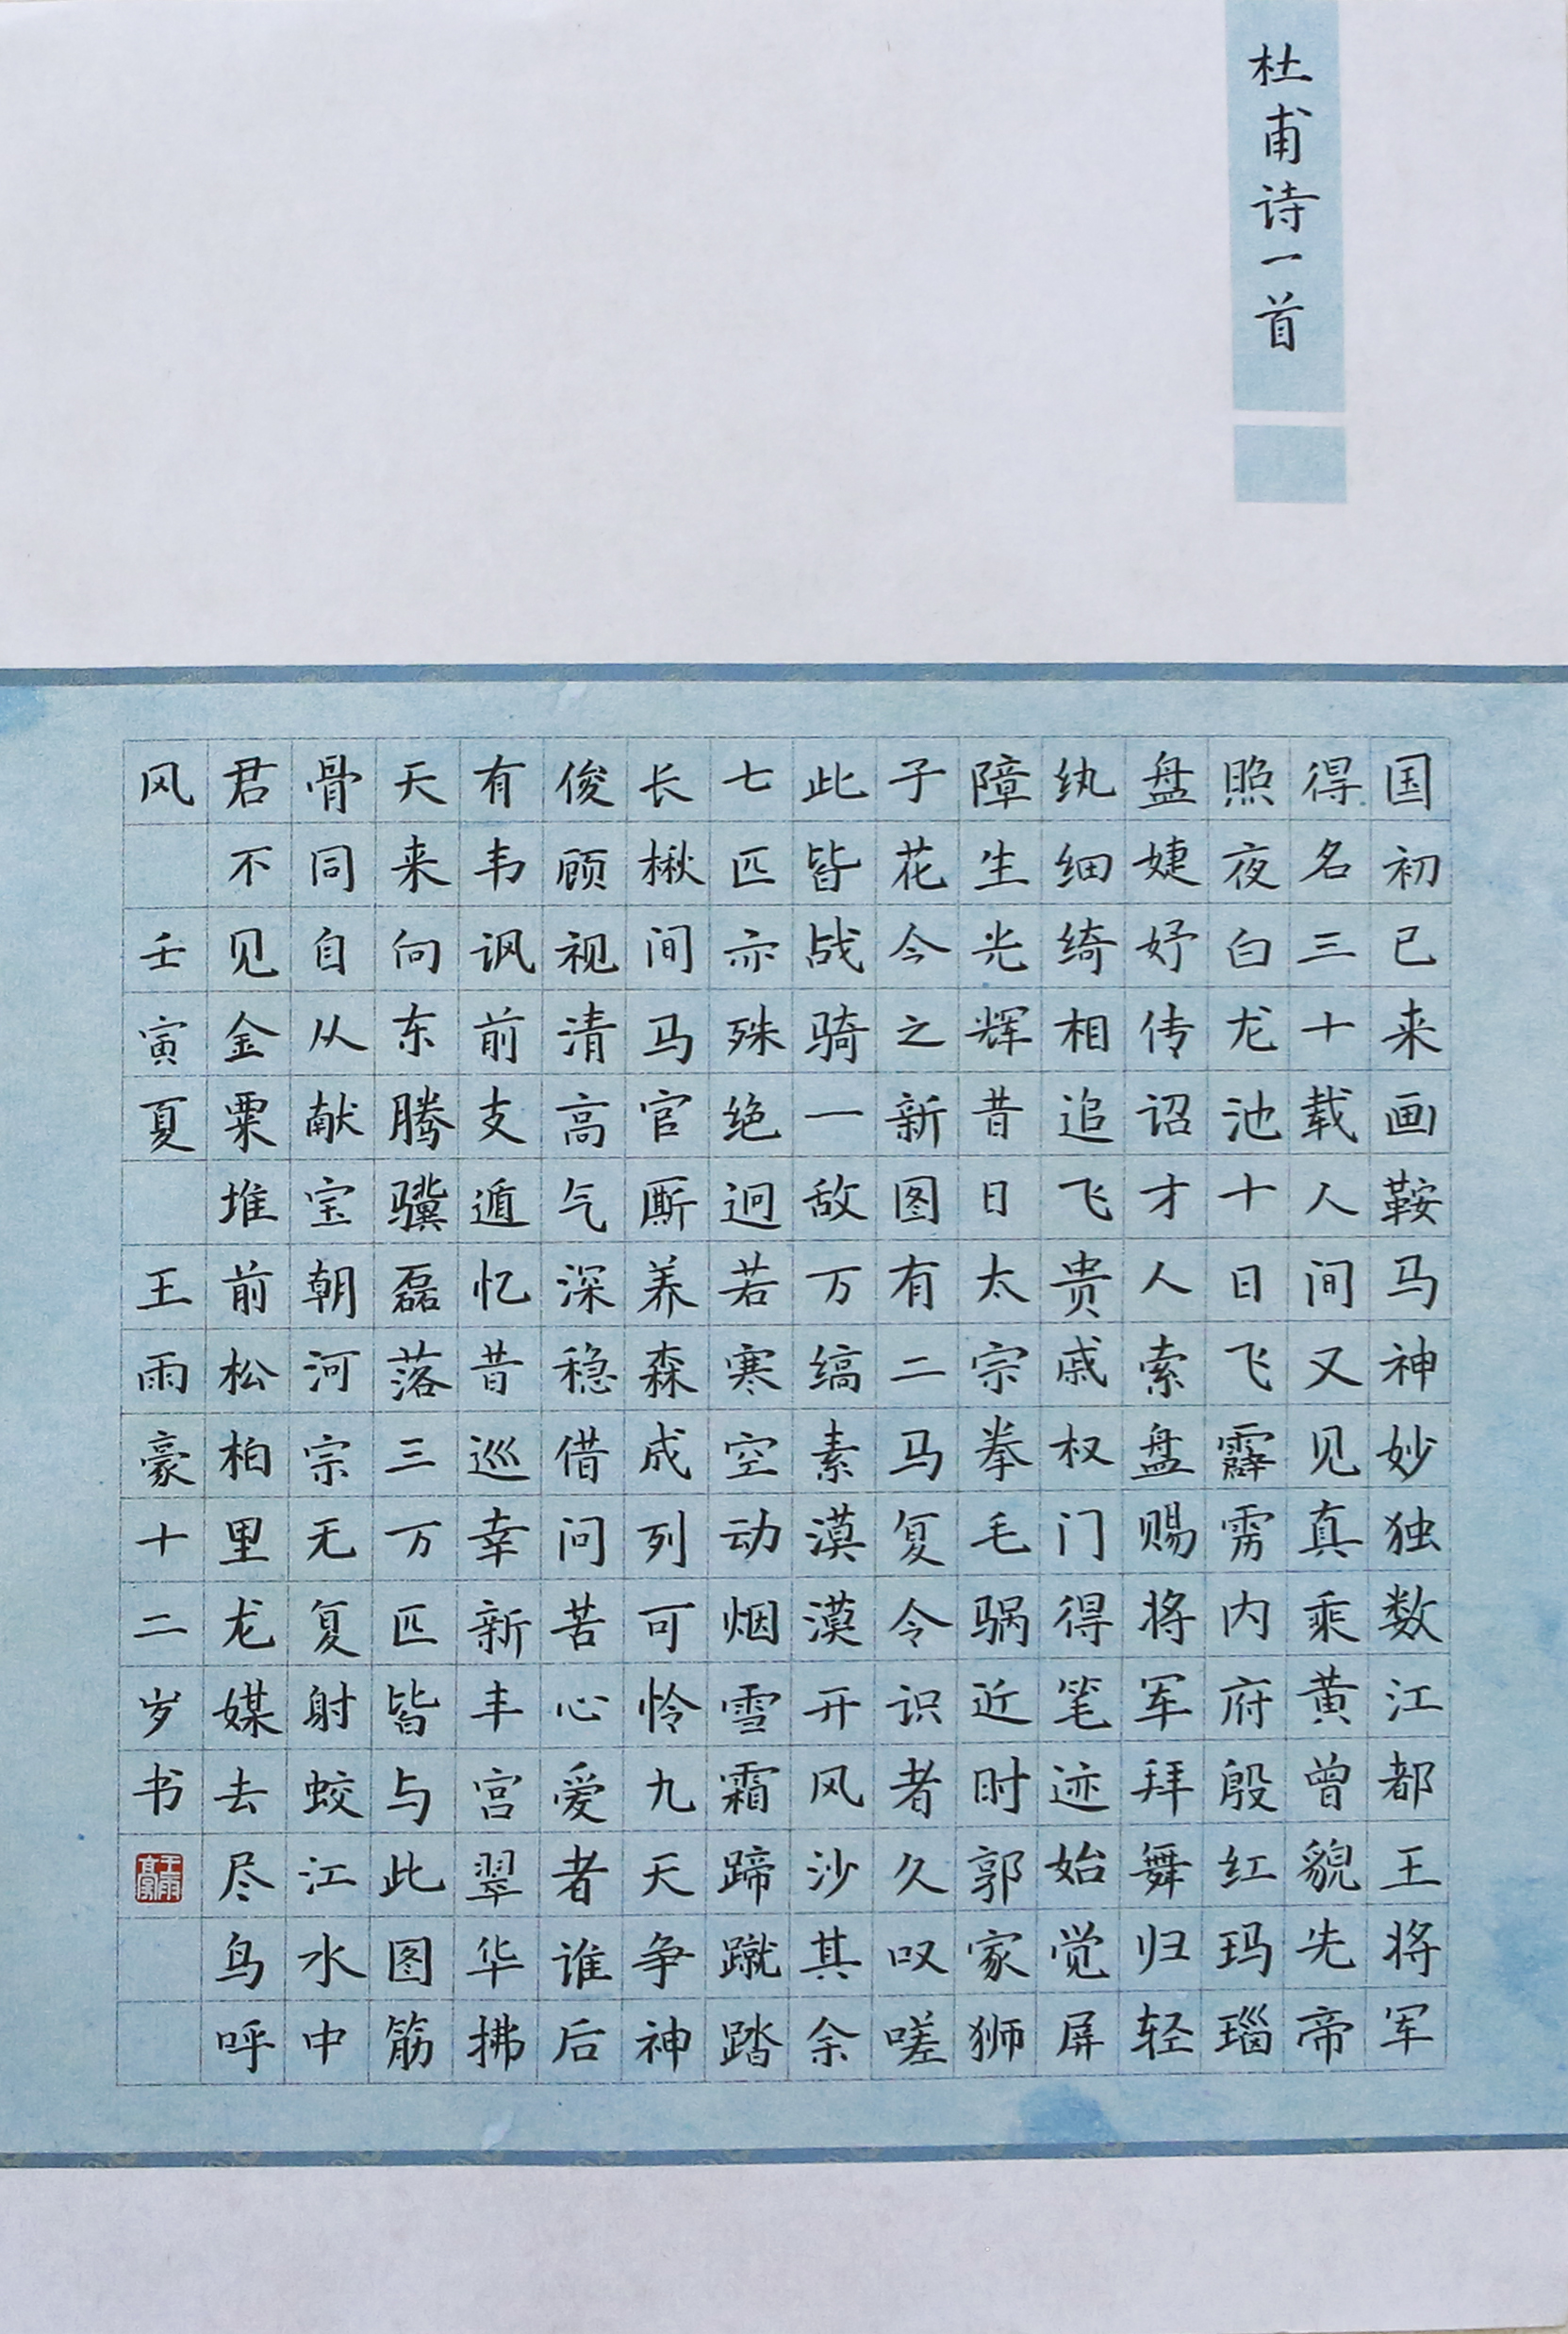 杜甫诗一首
国初已来画鞍马神妙独数江都王将军
得名三十载人间又见真乘黄曾貌先帝
照夜白龙池十日飞霹雳内府殷红玛瑙
盘婕妤传诏才人索盘赐将军拜舞归轻
纨细绮相追飞贵戚权门得笔迹始觉屏
障生光辉昔日太宗拳毛䯄近时郭家狮
子花今之新图有二马复令识者久叹嗟
此皆战骑一敌万缟素漠漠开风沙其余
七匹亦殊绝迥若寒空动烟雪霜蹄蹴踏
长楸间马官厮养森成列可怜九天争神
俊顾视清高气深稳借问苦心爱者谁后
有韦讽前支遁忆昔巡幸新丰宫翠华拂
天来向东腾骥磊落三万匹皆与此图筋
骨同自从献宝朝河宗无复射蛟江水中
君不见金粟堆前松柏里龙媒去尽鸟呼
风 壬寅夏 王雨豪十二岁书
王雨豪